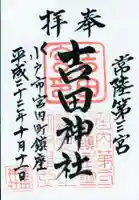 奉拝
常陸第三宮
吉田神社
水戸市宮田町鎮座
平成二十二年十月十日